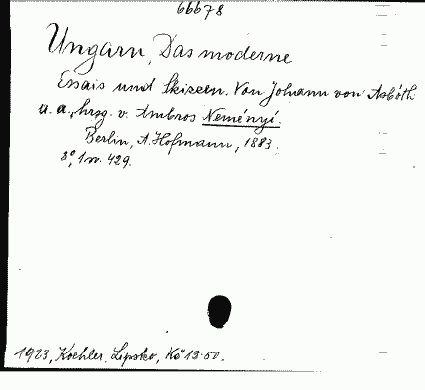 66678
Ungarn, Das moderne
Essais und Skizzen. Von Johann von Asbóth
u. a., hrsg. v. Ambros Neményi.
Berlin, A. Hofmann, 1883.
8°, 1 w. 429.
1923, Koehler, Lipsko, Kč 13·50.